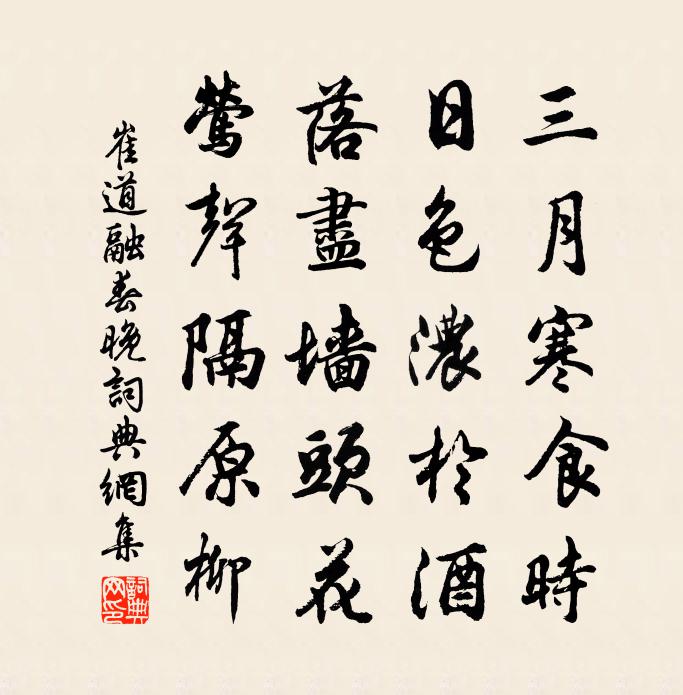 三月寒食時
日色濃於酒
落盡墻頭花
鶯聲隔原柳
崔道融春晚詞典網集
詞典網印